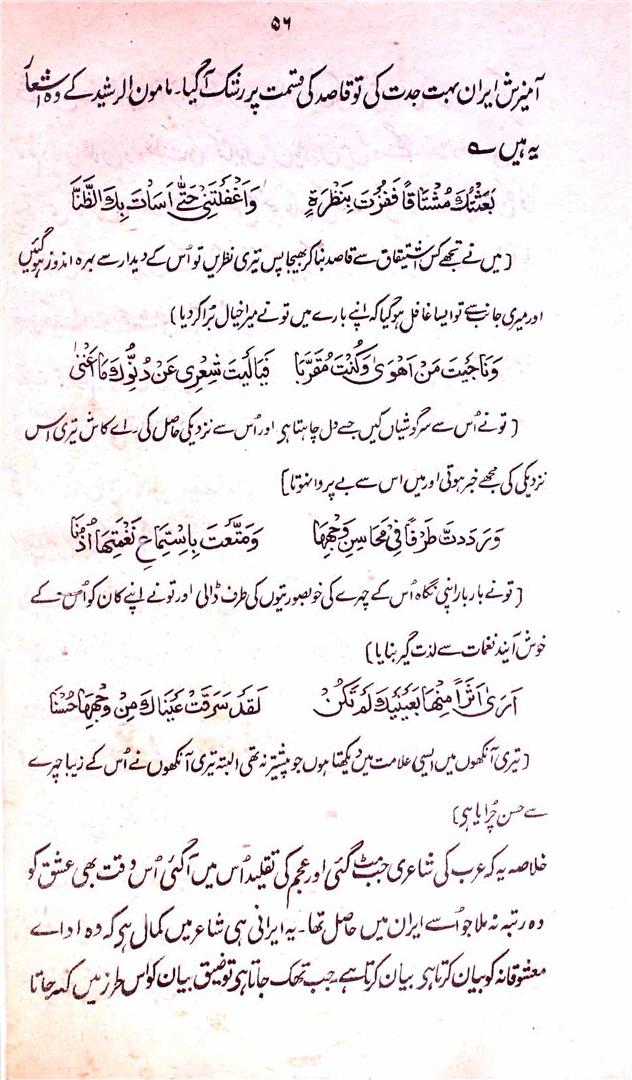 ۵۶
آمیزش ایران بہت جدت کی تو قاصد کی قسمت پر رشک آگیا۔ مامون الرشید کے وہ اشعار
یہ ہیں ؎
بَعَثْتُكَ مُشْتَاقًا فَفُزْتَ بِنَظْرَةٍ وَاَغْفَلْتَنِیْ حَتّٰی اَسَاْتَ بِكَ الظَّنَّا
[میں نے تجھے کس اشتیاق سے قاصد بنا کر بھیجا پس تیری نظریں تو اُس کے دیدار سے بہرہ اندوز ہو گئیں
اور میری جانب سے تو ایسا غافل ہو گیا کہ اپنے بارے میں تو نے میرا خیال بُرا کر دیا)
وَنَاجَیْتَ مَنْ اَهْوٰی وَكُنْتَ مُقَرَّبًا فَیَالَیْتَ شِعْرِی عَنْ دُنُوِّكَ مَا اَغْنٰی
[تو نے اُس سے سرگوشیاں کیں جسے دل چاہتا ہی اور اُس سے نزدیکی حاصل کی۔ اے کاش تیری اس
نزدیکی کی مجھے خبر ہوتی اور میں اس سے بے پروا نہوتا]
وَرَدَدتَّ طَرْفًا فِیْ مَحَاسِنِ وَجْهِهَا وَمَتَّعْتَ بِاسْتِمَاعِ نَغْمَتِهَا اُذْنَا
[تو نے بار بار اپنی نگاہ اُس کے چہرے کی خوبصورتیوں کی طرف ڈالی اور تو نے اپنے کان کو اُس کے
خوش آیند نغمات سے لذت گیر بنایا)
اَرٰی اَثَرًا مِنْهَا بِعَیْنَیْكَ لَمْ تَكُنْ لَقَدْ سَرَقَتْ عَیْنَاكَ مِنْ وَجْهِهَا حُسْنَا
[تیری آنکھوں میں ایسی علامت میں دیکھتا ہوں جو پیشتر نہ تھی البتہ تیری آنکھوں نے اُس کے زیبا چہرے
سے حسن چُرایا ہی)
خلاصہ یہ کہ عرب کی شاعری جب مٹ گئی اور عجم کی تقلید اُس میں آ گئی اُس وقت بھی عشق کو
وہ رتبہ نہ ملا جو اُسے ایران میں حاصل تھا۔ یہ ایرانی ہی شاعر میں کمال ہی کہ وہ اداے
معشوقانہ کو بیان کرتا ہی بیان کرتا ہے جب تھک جاتا ہی تو ضیق بیان کو اس طرز میں کہہ جاتا